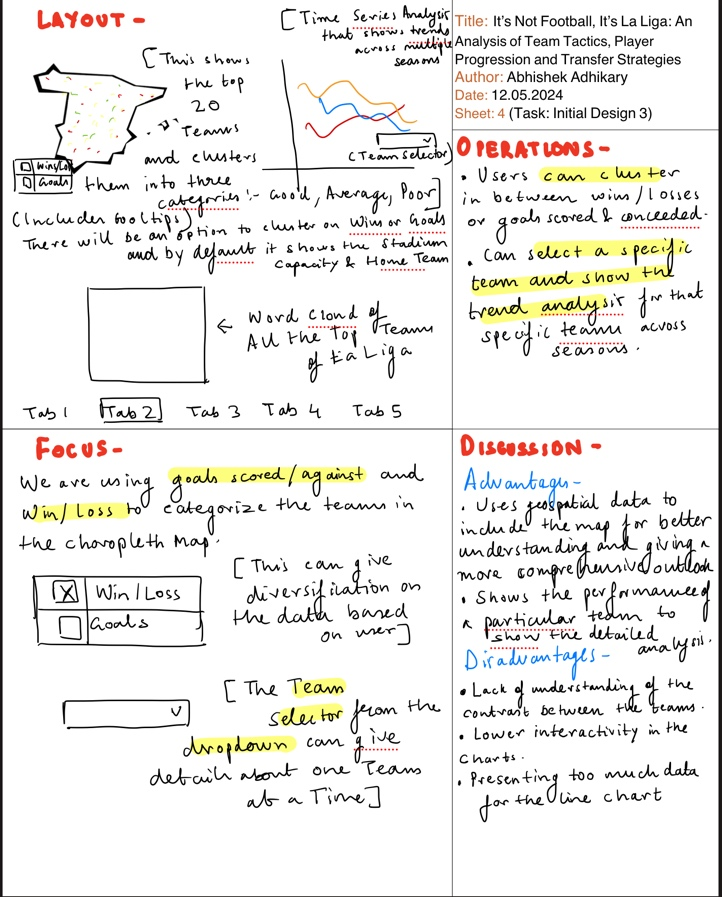 LAYOUT -
[This shows
the top
20
Teams
and clusters
them into three
categories :- Good, Average, Poor]
Win/Loss
Goals
(Includes tooltips)
There will be an option to cluster on Wins or Goals
and by default it shows the Stadium
Capacity & Home Team
[Time Series Analysis
that shows trends
across multiple
seasons
(Team Selector)
← Word Cloud of
All the Top Teams
of La Liga
Tab 1 Tab 2 Tab 3 Tab 4 Tab 5
Title: It's Not Football, It's La Liga: An
Analysis of Team Tactics, Player
Progression and Transfer Strategies
Author: Abhishek Adhikary
Date: 12.05.2024
Sheet: 4 (Task: Initial Design 3)
OPERATIONS -
• Users can cluster
in between wins/losses
or goals scored & conceeded.
• Can select a specific
team and show the
trend analysis for that
specific team across
seasons.
FOCUS -
We are using goals scored/against and
Win/Loss to categorize the teams in
the choropleth Map.
X Win/Loss
Goals
[This can give
diversification on
the data based
on user]
[The Team
selector from the
dropdown can give
detail about one Teams
at a Time]
DISCUSSION -
Advantages -
• Uses geospatial data to
include the map for better
understanding and giving a
more comprehensive outlook
• Shows the performance of
a particular team to
show the detailed
analysis.
Disadvantages -
• Lack of understanding of the
contrast between the teams.
• Lower interactivity in the
charts.
• Presenting too much data
for the line chart